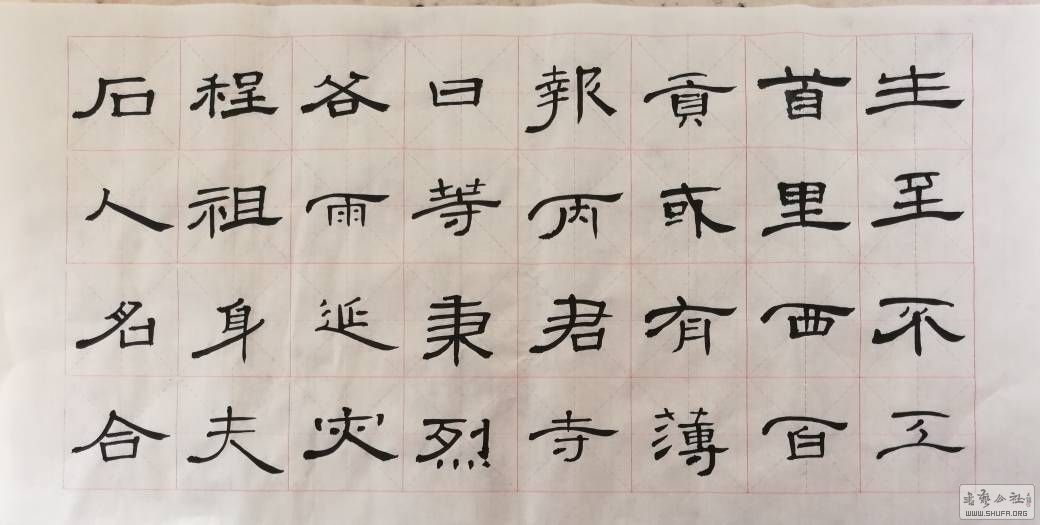 生至不
首里西百
貢或有薄
報丙君寺
曰等秉烈
各雨延灾
程祖身夫
石人名合
書藝公社
WWW.SHUFA.ORG